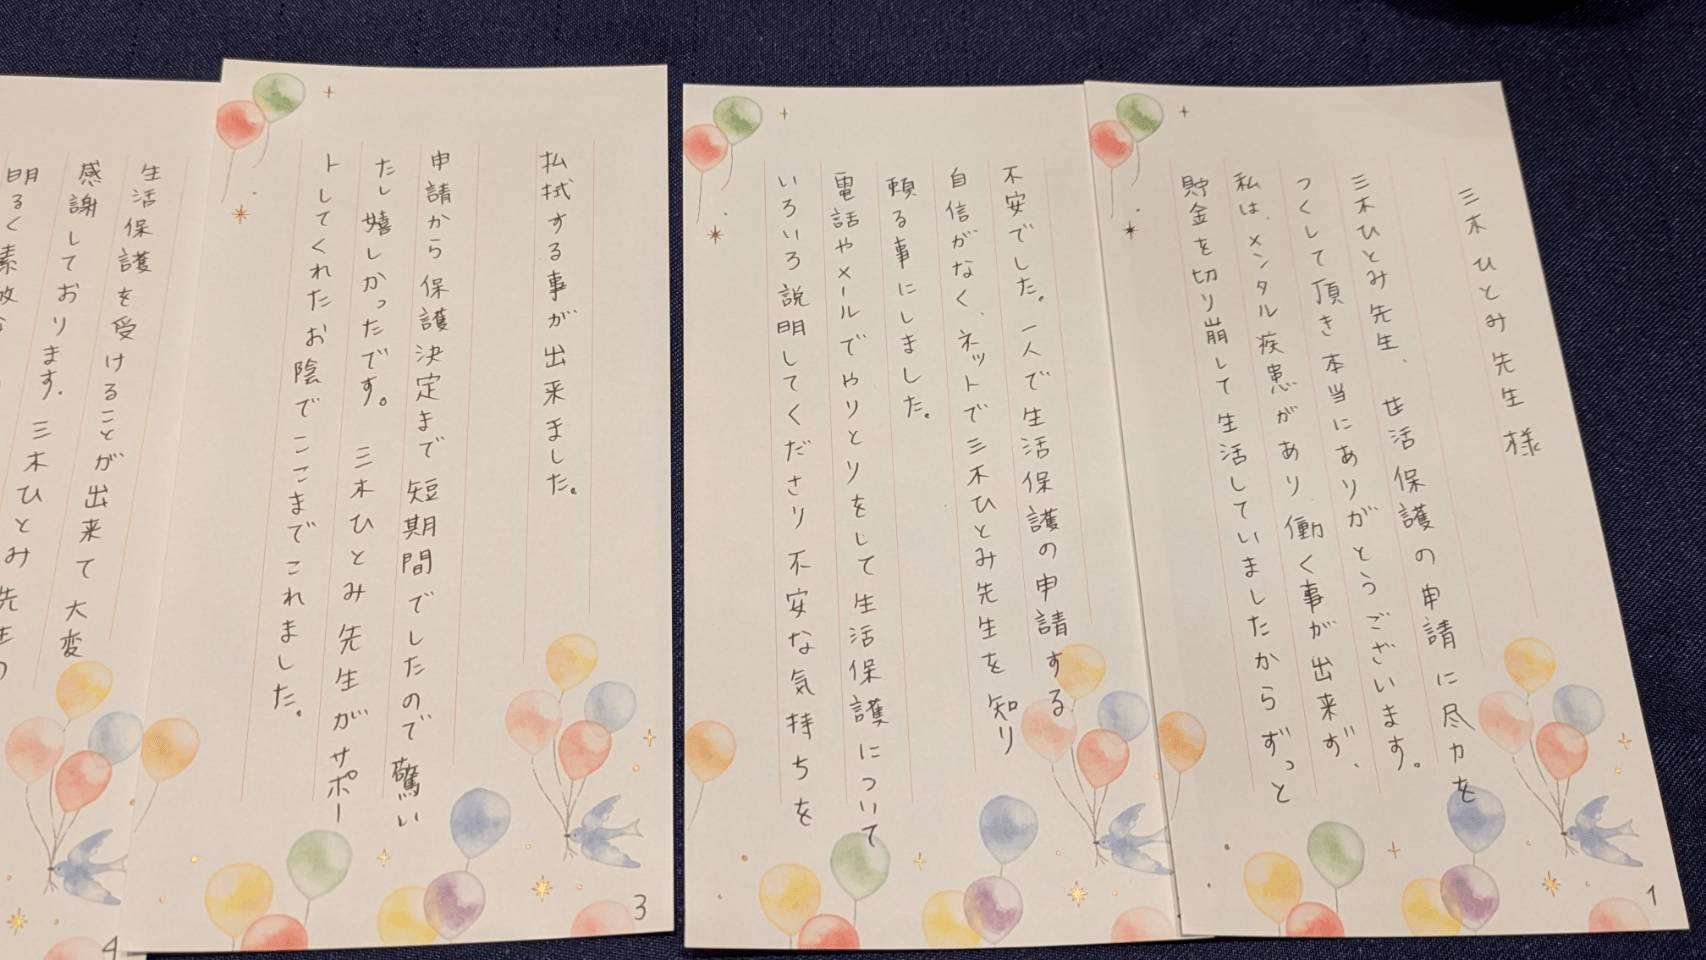 三木ひとみ先生様
三木ひとみ先生、生活保護の申請に尽力を
つくして頂き本当にありがとうございます。
私は、メンタル疾患があり働く事が出来ず、
貯金を切り崩して生活していましたからずっと
1
不安でした。一人で生活保護の申請する
自信がなく、ネットで三木ひとみ先生を知り
頼る事にしました。
電話やメールでやりとりをして生活保護について
いろいろ説明してくださり不安な気持ちを
払拭する事が出来ました。
申請から保護決定まで短期間でしたので驚い
たし嬉しかったです。三木ひとみ先生がサポー
トしてくれたお陰でここまでこれました。
3
生活保護を受けることが出来て大変
感謝しております。三木ひとみ先生の
明るく素敵な
4